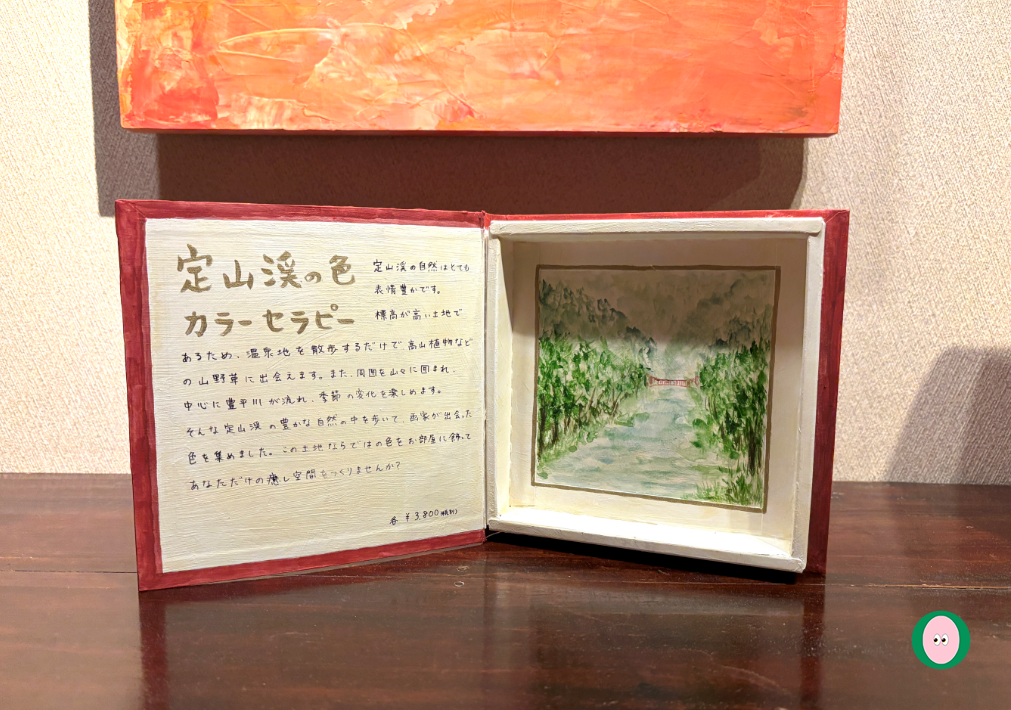 定山渓の色
カラーセラピー
定山渓の自然はとても
表情豊かです。
標高が高い土地で
あるため、温泉地を散歩するだけで高山植物など
の山野草に出会えます。また、周囲を山々に囲まれ、
中心に豊平川が流れ、季節の変化を楽しめます。
そんな定山渓の豊かな自然の中を歩いて、画家が出会った
色を集めました。この土地ならではの色をお部屋に飾って
あなただけの癒し空間をつくりませんか?
各 ¥3,800(税別)